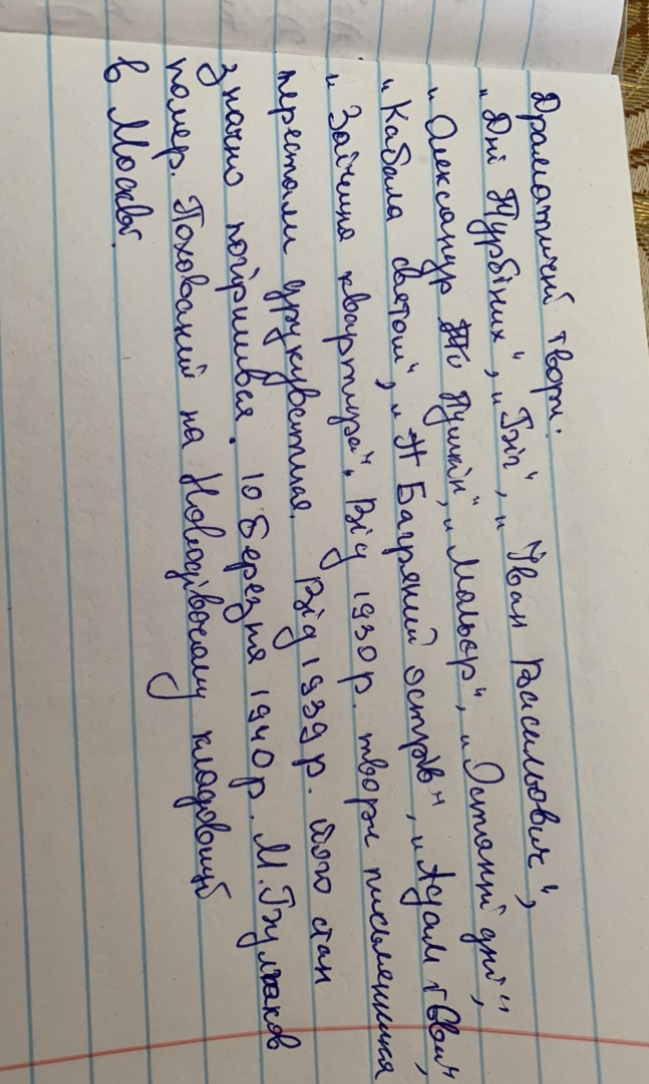 Драматичні твори:
„Дні Турбіних", „Біг", „Іван Васильович",
„Олександр Пушкін", „Мольєр", „Останні дні",
„Кабала святош", „Багряний острів", „Адам і Єва",
„Зойчина квартира". Від 1930 р. твори письменника
перестали друкуватися. Від 1939 р. його стан
значно погіршився. 10 березня 1940 р. М. Булгаков
помер. Похований на Новодівочому кладовищі
в Москві.